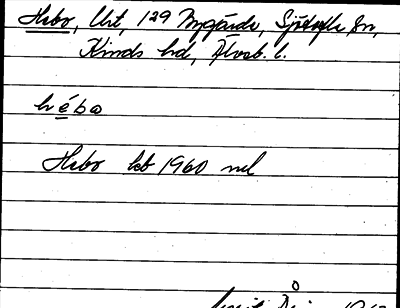 Habo, Urt, 129 Nygärde, Sjötofta sn,
Kinds hd, Älvsb. l.
hébo
Habo kb 1960 nel